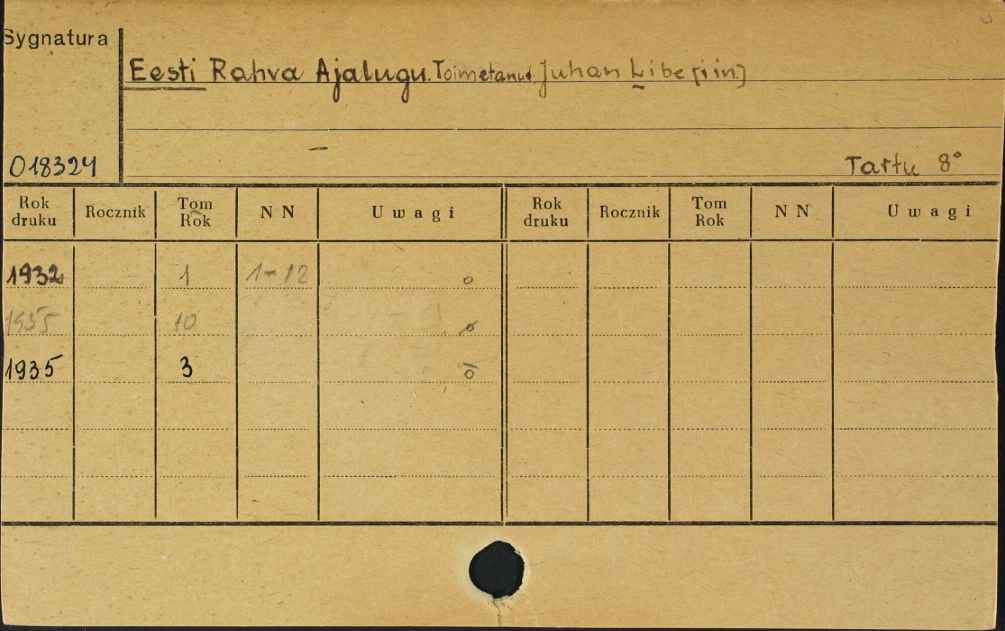 Sygnatura
Eesti Rahva Ajalugu. Toimetanud Juhan Libe[iin]
018324
Tartu 8°
Rok druku Rocznik Tom Rok N N Uwagi Rok druku Rocznik Tom Rok N N Uwagi
1932 1 1-12 o
1935 10
1935 3 o